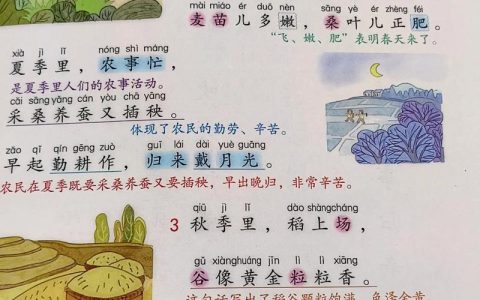 mài miáo ér duō nèn sāng yè ér zhèng féi
麦苗儿多嫩，桑叶儿正肥。
“飞、嫩、肥”表明春天来了。
xià jì lǐ nóng shì máng
夏季里，农事忙，
是夏季里人们的农事活动。
cǎi sāng yǎng cán yòu chā yāng
采桑养蚕又插秧。
体现了农民的勤劳、辛苦。
zǎo qǐ qín gēng zuò guī lái dài yuè guāng
早起勤耕作，归来戴月光。
农民在夏季既要采桑养蚕又要插秧，早出晚归，非常辛苦。
qiū jì lǐ dào shàng cháng
3 秋季里，稻上场，
gǔ xiàng huáng jīn lì lì xiāng
谷像黄金粒粒香。
这句话写出了稻谷颗粒饱满、色泽金黄